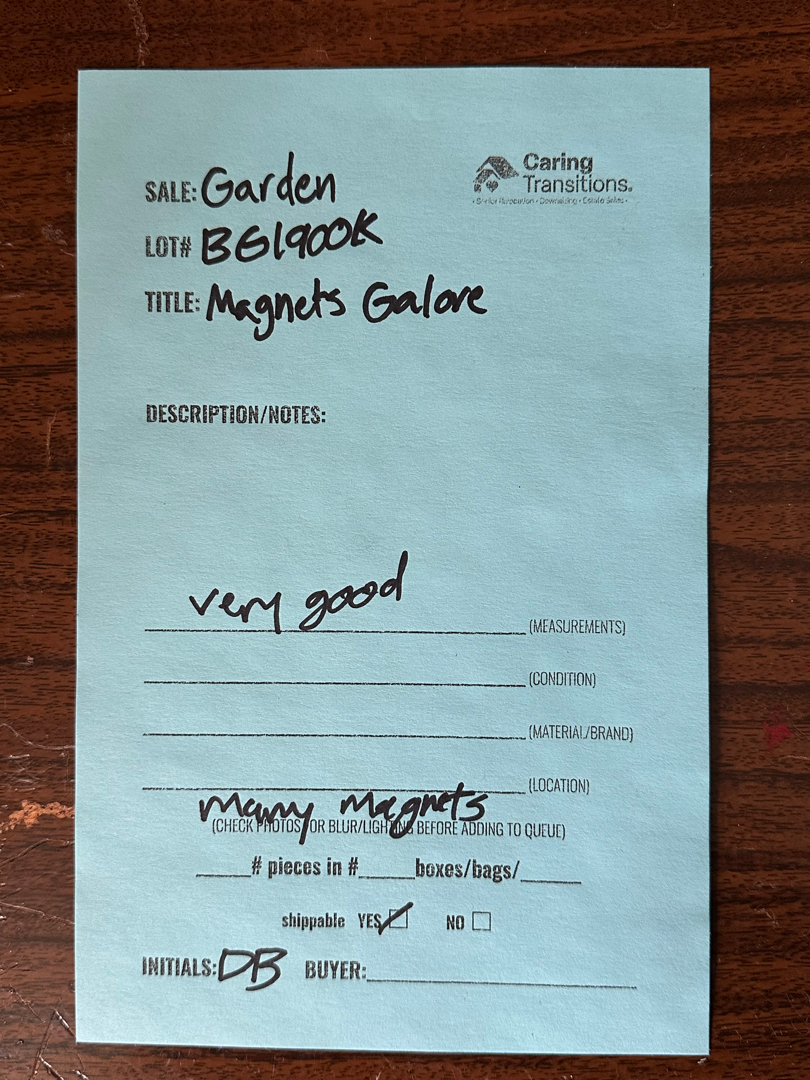 Caring
Transitions®
• Senior Relocation • Downsizing • Estate Sales •
SALE: Garden
LOT# BG1900K
TITLE: Magnets Galore
DESCRIPTION/NOTES:
very good
(MEASUREMENTS)
(CONDITION)
(MATERIAL/BRAND)
(LOCATION)
many magnets
(CHECK PHOTOS FOR BLUR/LIGHTING BEFORE ADDING TO QUEUE)
_____# pieces in #_____boxes/bags/_____
shippable YES NO
INITIALS: DB BUYER: